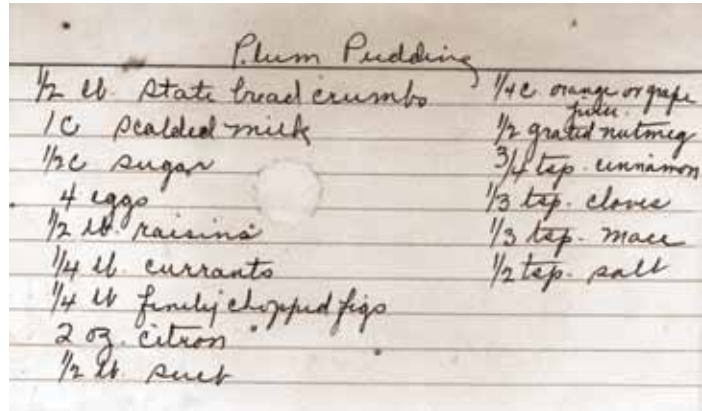 Plum Pudding
1/2 lb. State bread crumbs
1 C scalded milk
1/2 c sugar
4 eggs
1/2 lb. raisins
1/4 lb. currants
1/4 lb finely chopped figs
2 oz. citron
1/2 lb. suet
1/4 c orange or grape
juice.
1/2 grated nutmeg
3/4 tsp. cinnamon
1/3 tsp. cloves
1/3 tsp. mace
1/2 tsp. salt